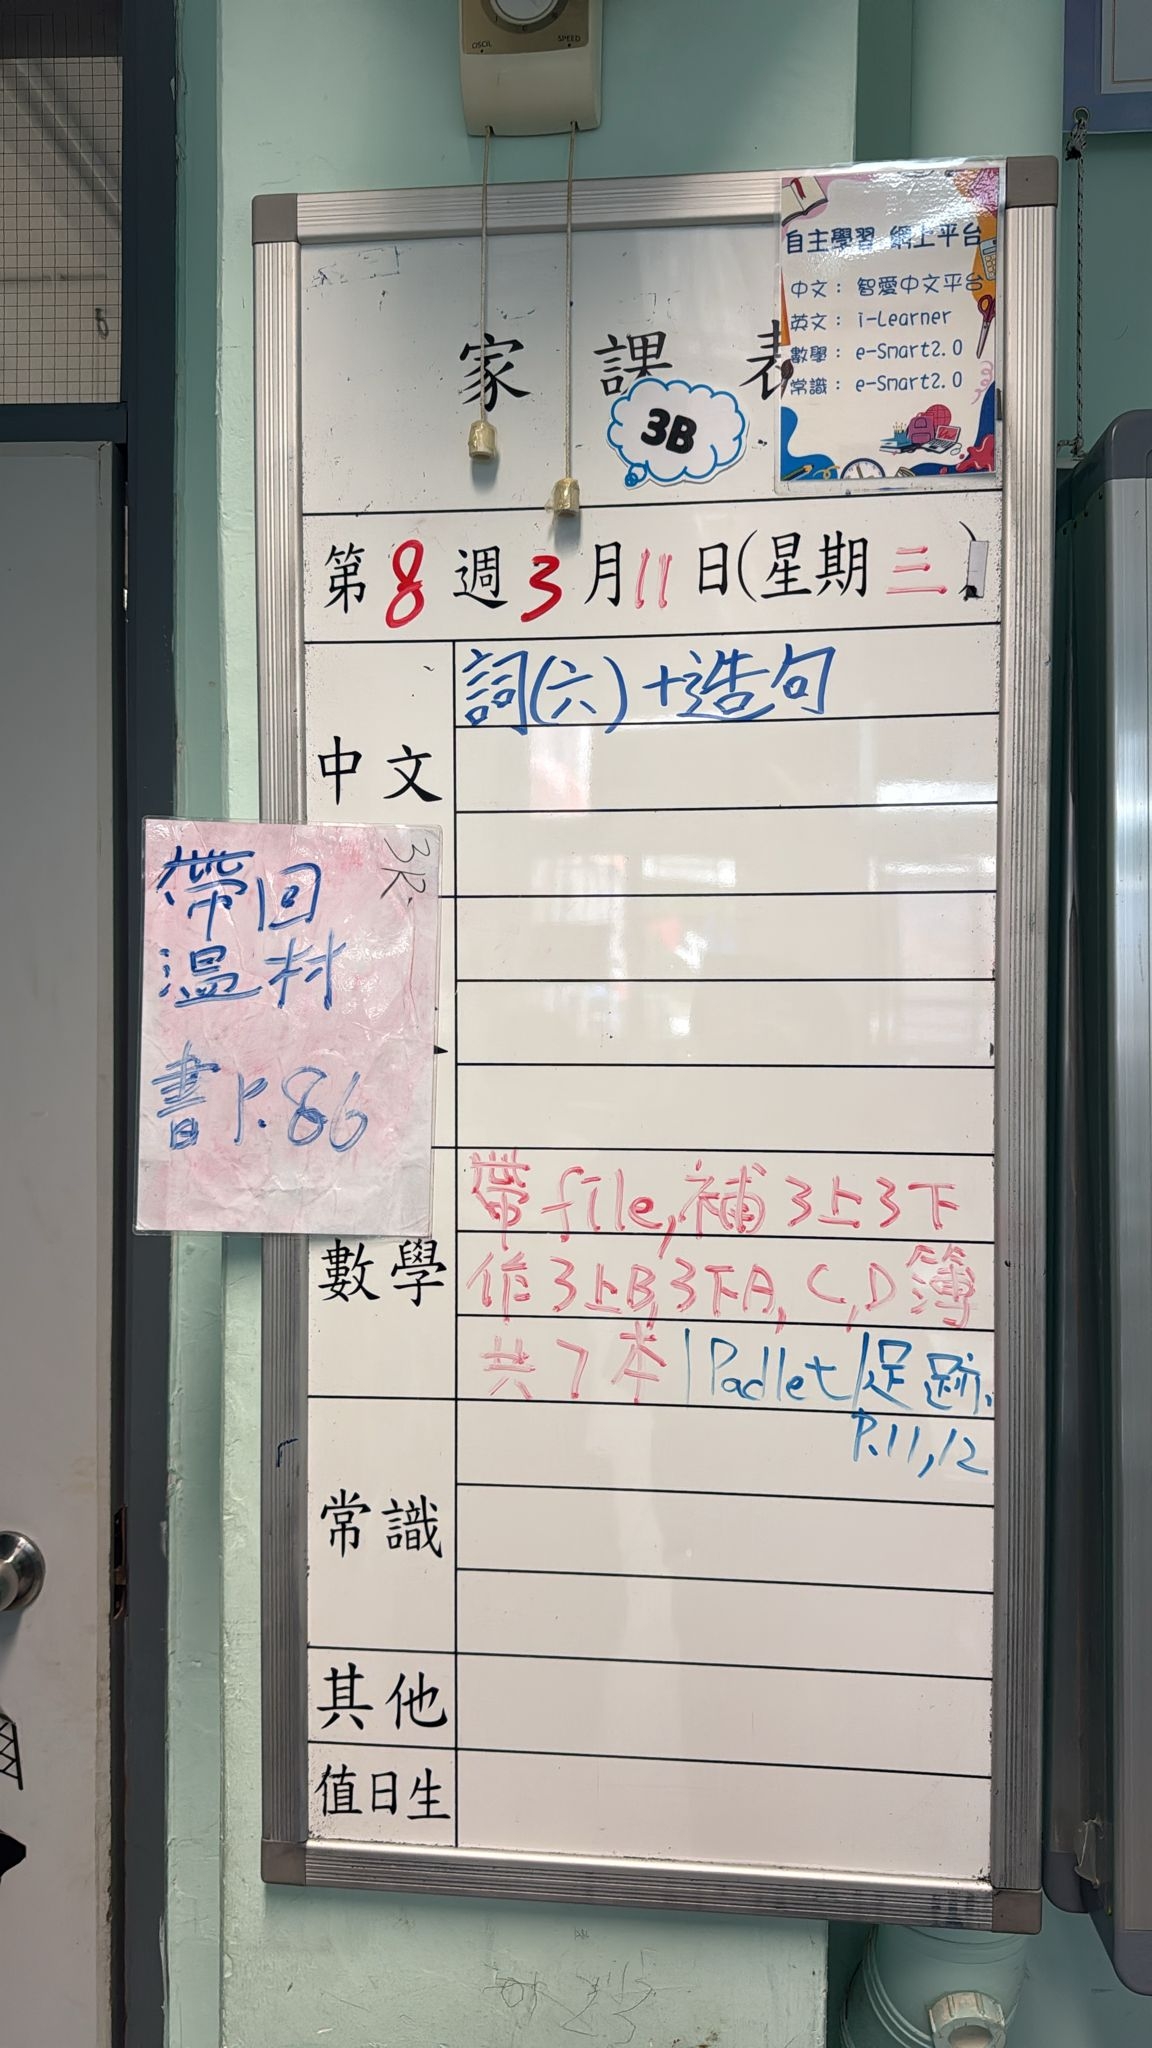 OSCIL SPEED
自主學習 網上平台
中文： 智愛中文平台
英文： i-Learner
數學： e-Smart2.0
常識： e-Smart2.0
家課表
3B
第8週3月11日(星期三)
中文
詞(六)+造句
帶回
溫材
書P.86
數學
帶file,補3上3下
作3上B,3下A, C,D簿
共7本|Padlet|足跡
P.11,12
常識
其他
值日生